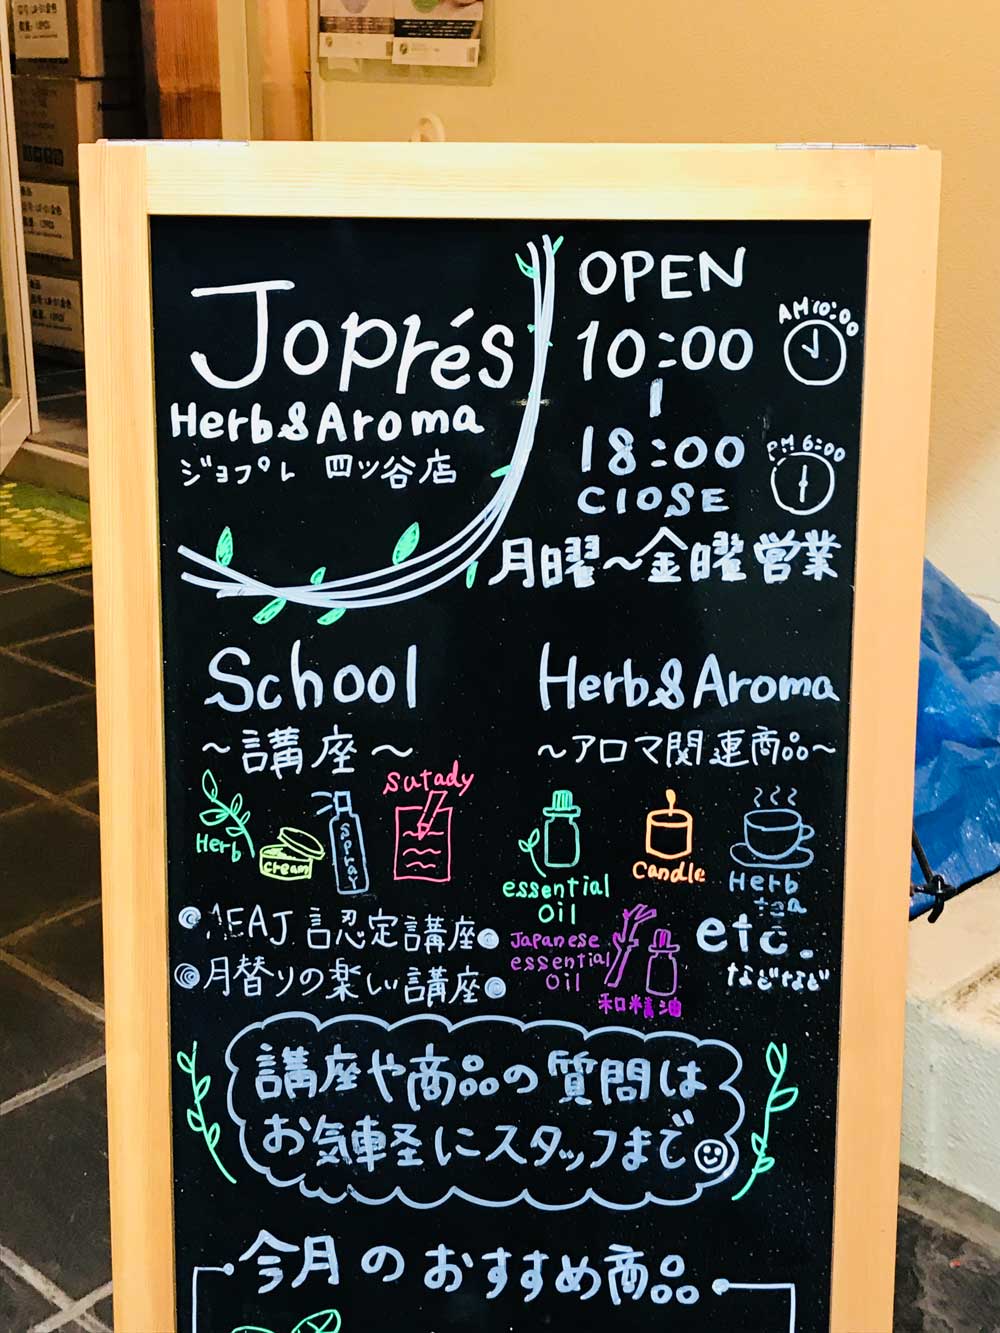 Joprés
Herb&Aroma
ジョプレ 四ツ谷店
OPEN
10:00
AM10:00
18:00
PM 6:00
ClOSE
月曜～金曜営業
School
～講座～
Herb
cream
Spray
Sutady
●AEAJ認定講座●
●月替りの楽しい講座●
Herb&Aroma
～アロマ関連商品～
essential
Oil
Candle
Herb
tea
Japanese
essential
Oil
和精油
etc.
などなど
講座や商品の質問は
お気軽にスタッフまで
今月のおすすめ商品